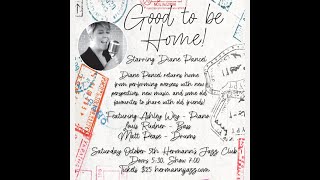 Good to be
Home!
Starring Diane Pancel
Diane Pancel returns home
from performing overseas with new
perspectives, new music, and some old
favourites to share with old friends!
Featuring Ashley Wey - Piano
Louis Rudner - Bass
Matt Pease - Drums
Saturday October 5th Hermann's Jazz Club
Doors 5:30, Show 7:00
Tickets $25 hermannsjazz.com